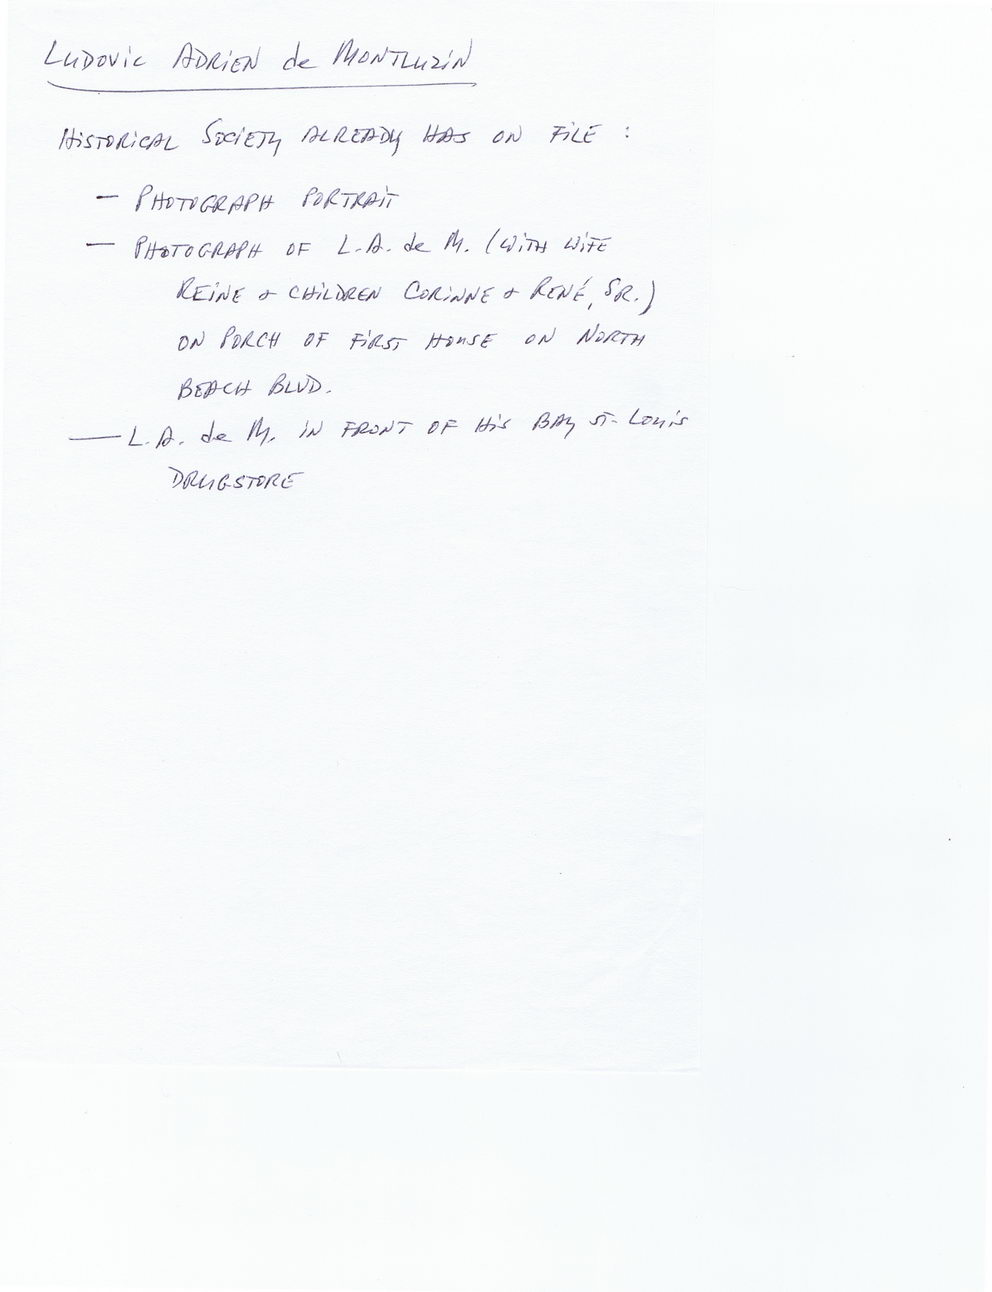 Ludovic Adrien de Montluzin
Historical Society already has on file :
— Photograph portrait
— Photograph of L.A. de M. (with wife
Reine + children Corinne + René, Sr.)
on porch of first house on North
Beach Blvd.
— L.A. de M. in front of his Bay St. Louis
drugstore